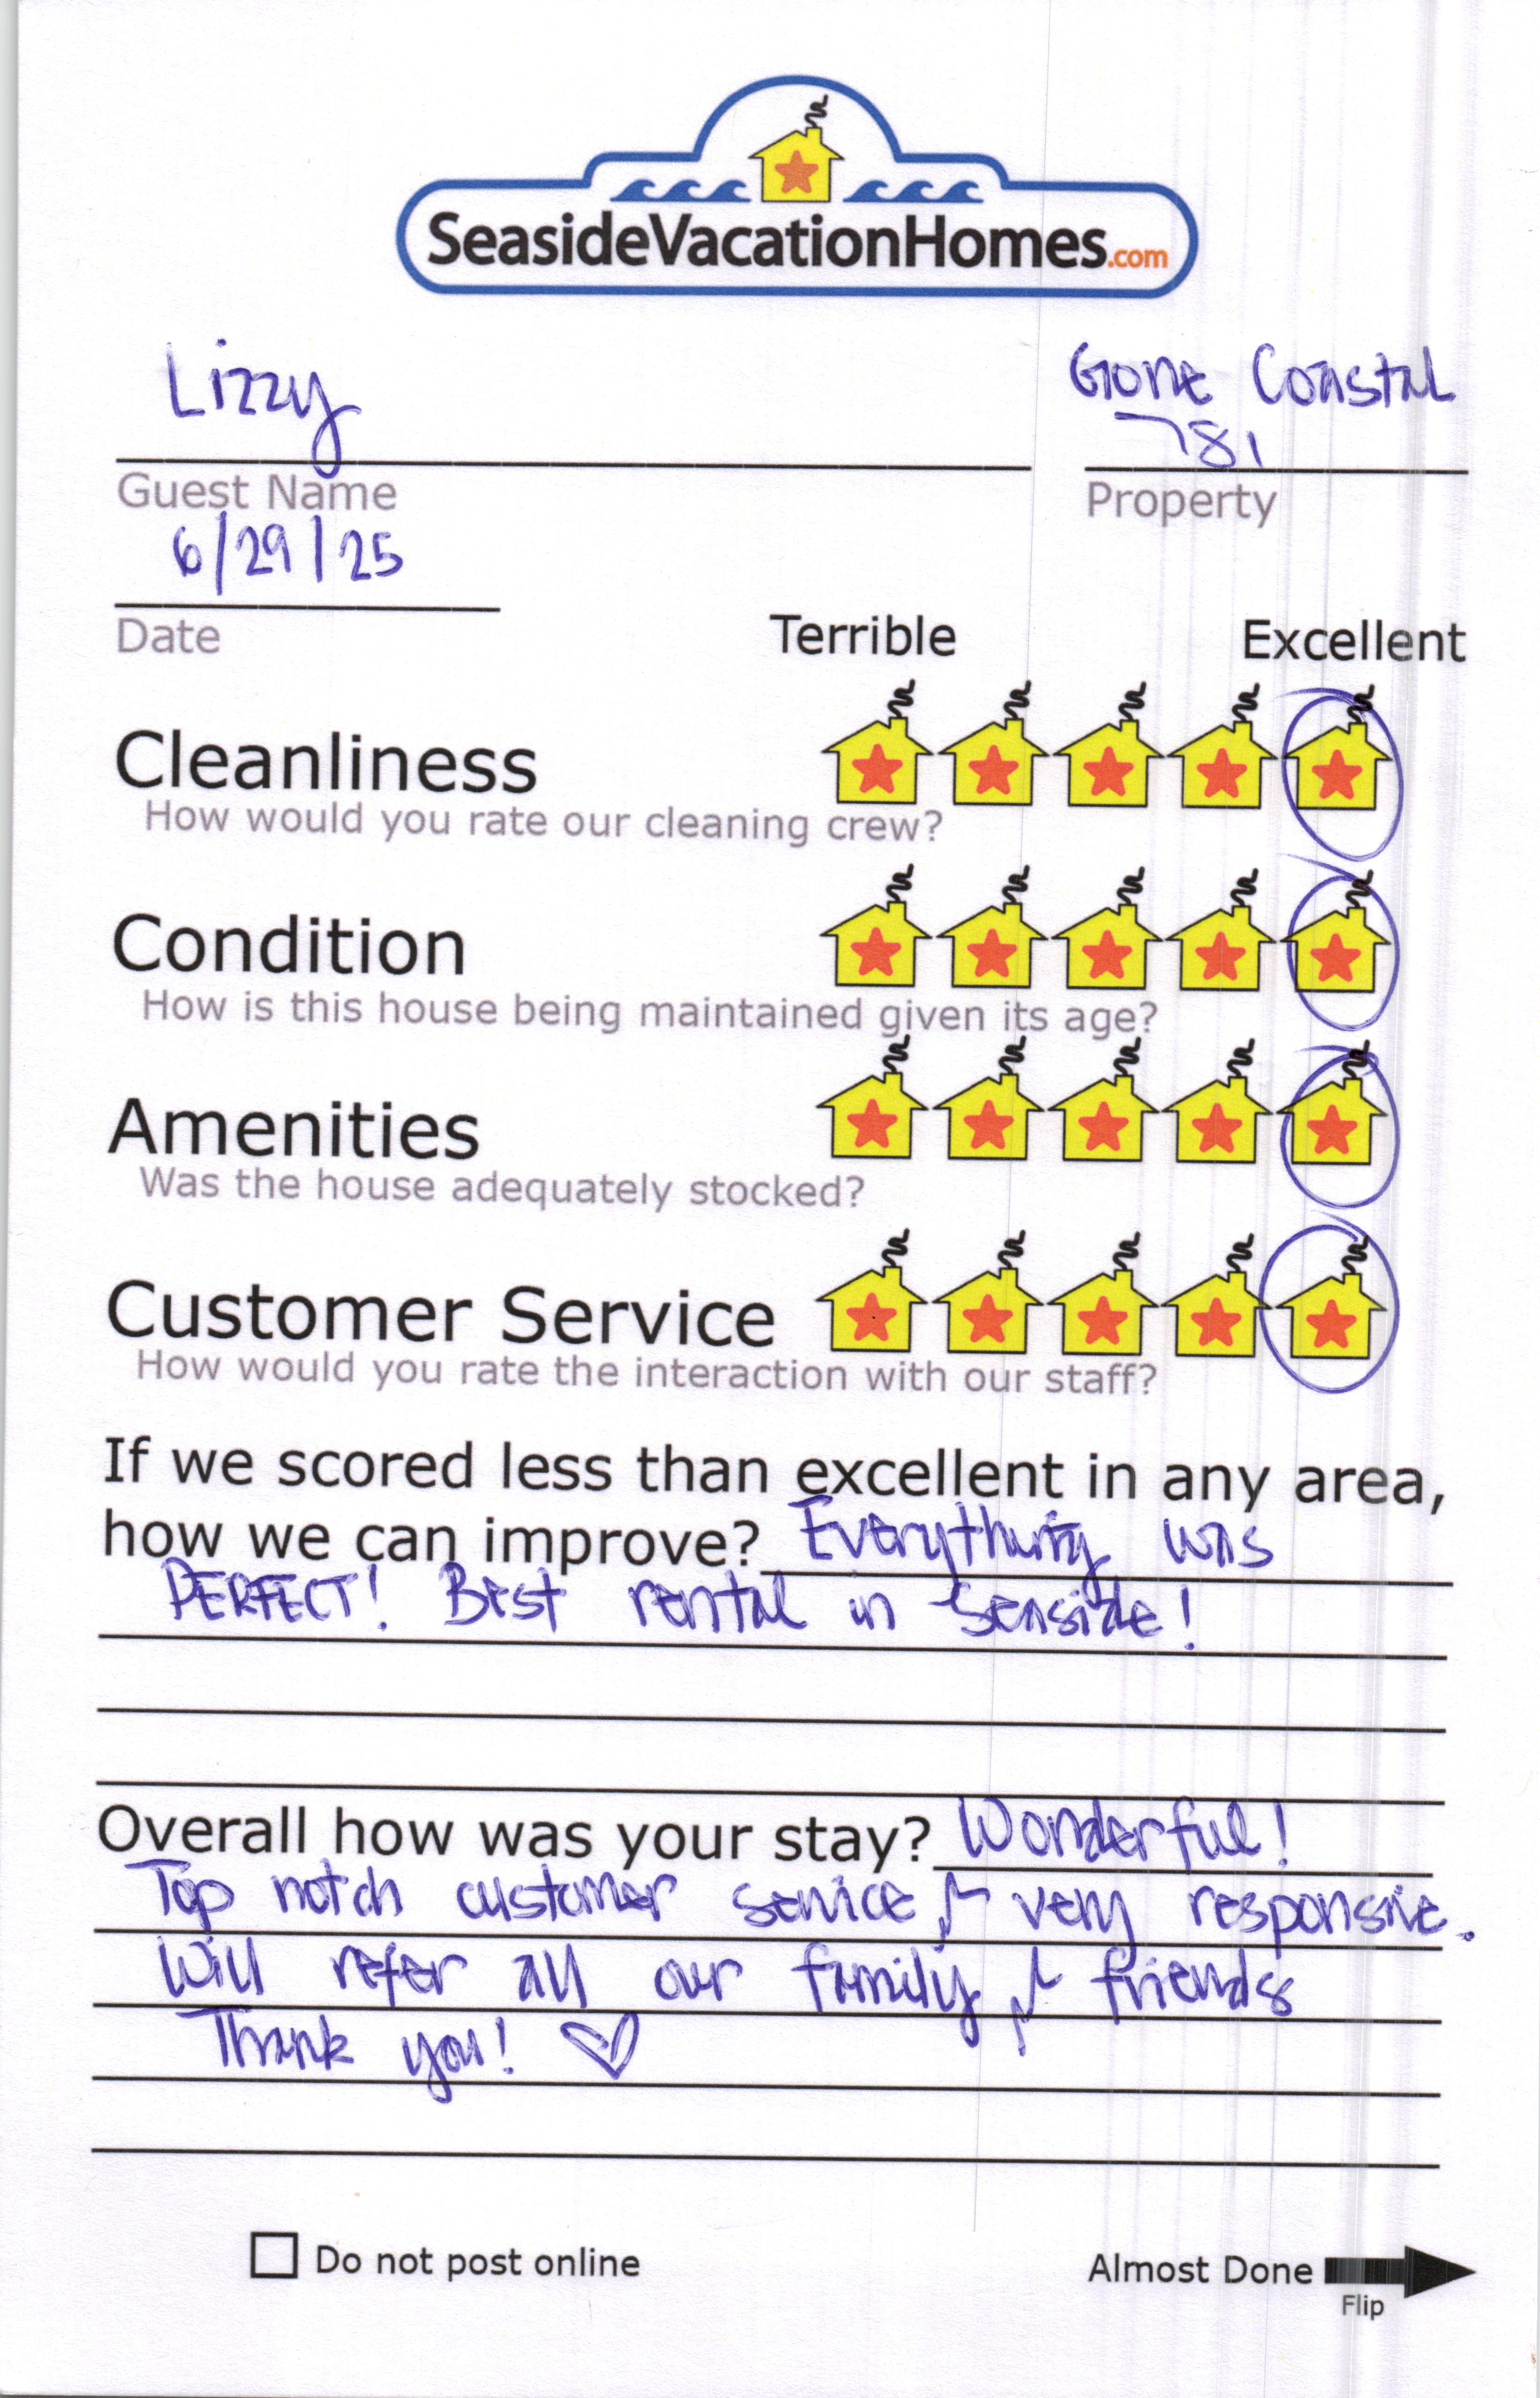 SeasideVacationHomes.com
Lizzy
Gone Coastal
781
Guest Name
Property
6/29/25
Date
Terrible Excellent
Cleanliness
How would you rate our cleaning crew?
Condition
How is this house being maintained given its age?
Amenities
Was the house adequately stocked?
Customer Service
How would you rate the interaction with our staff?
If we scored less than excellent in any area,
how we can improve? Everything was
PERFECT! Best rental in Seaside!
Overall how was your stay? Wonderful!
Top notch customer service & very responsive.
Will refer all our family & friends
Thank you! ♡
Do not post online
Almost Done
Flip